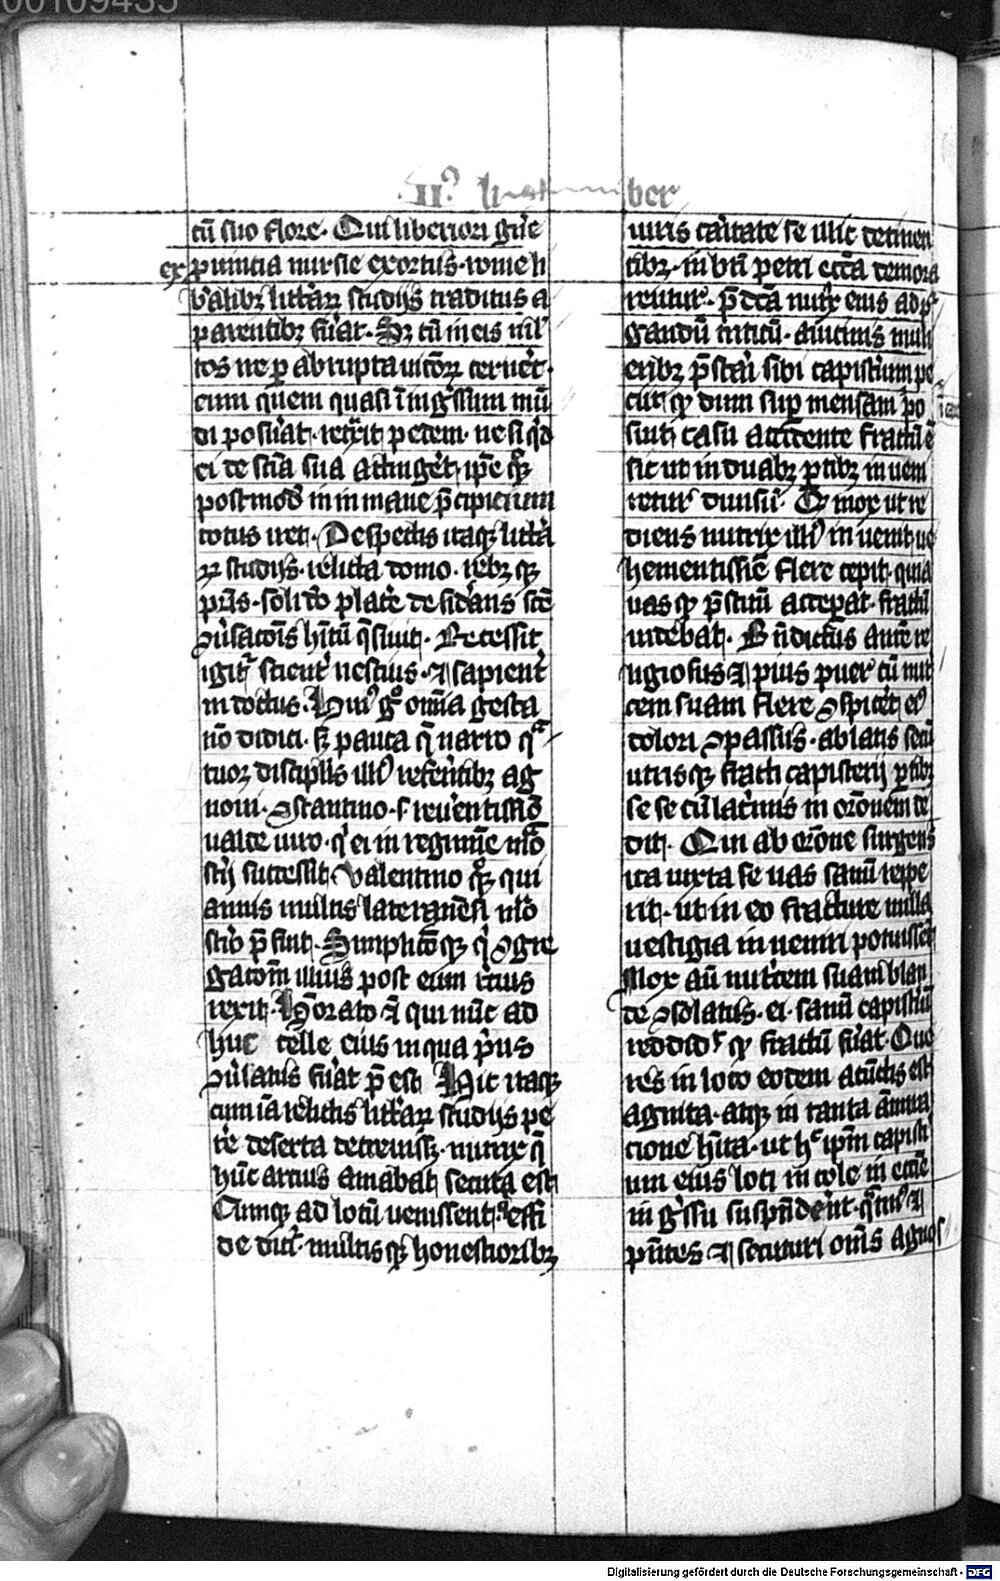 00109435
II⁹ liber
cū suo flore. Qui liberiori gn̄e
ex puincia nursie exortus. rome li
b̄alibꝫ litt̄aꝝ studijs traditus a
parentibꝫ fu̅at. Sꝫ cū in eis mł
tos ire ꝑ abrupta uitioꝝ cerneret.
eum quem quasi ī ingssum mū
di posu̅at. retͣxit pedem. ne si qͥd
ei de scīa sua attinget. ip̄e qͦꝫ
postmod̄ in inmane p̄cipicium
totus iret. Despectis itaqꝫ litt̄a
ꝝ studijs. relicta domo. rebꝫqꝫ
pr̄is. soli deo placere desid̄ans scē
ꝯu̅sacōis hītū q̄siuit. Recessit
igitᷣ scient̄ nescius. ⁊ sapient̄
indoctus. Huiꝰ gͦ omīa gesta
nō didici. sꝫ pauca q̄ narro qͣ
tuor discipl̄is illiꝰ referētibꝫ ag
noui. ꝯstantino .s. reu̅entissīo
ualde uiro. qͥ ei in regimīe mōa
st̄ij successit. Valentino qͦꝫ qui
annis multis lateran̄ensi mōa
st̄io p̄fuit. Simplicio qꝫ qͥ ꝯgre
gacōm illius post eum t̄cius
rexit. Honorato ⁊ qui nūc ad
huc celle eius in qua pͥus
ꝯu̅satus fu̅at p̄est. Hic itaqꝫ
cum iā relictis litt̄aꝝ studijs pe
t̄e deserta decreuissꝫ. nutrix q̄
hūc artius amabat. secuta est.
Cumqꝫ ad locū uenissent. qͥ effi
de dicit̄. multisqꝫ honestioribꝫ
uiris caritate se illic detinen
tibꝫ. in bt̄i petri ecc̄ia demora
rentur. p̄dc̄a nutx̄ eius ad p̄
gandū triticū. a uicinis muli
eribꝫ p̄stari sibi capist̄ium pe
ciit. qꝫ dum suꝑ mensam po
suit. casu accidente fractū ē
sic ut in duabꝫ ꝑtibꝫ inueni
retur diuisū. Qꝫ mox ut re
diens nutrix illiꝰ inuenit. ue
hementissime flere cepit. quia
uas qꝫ p̄stitū accepat. fractū
uidebat. Bn̄dictus autē re
ligiosus ⁊ pius puer cū nut
cem suam flere ꝯspic̄et. eiꝰ
dolori ꝯpassus. ablatis secū
utrisqꝫ fracti capisterij ꝑtibꝫ
sese cū lacrimis in orōnem de
dit. Qui ab orōne surgens
ita iuxta se uas sanū reppe
rit. ut in eo fracture nulla
uestigia inueniri potuissent.
Mox aūt nut̄cem suam blan
de ꝯsolatus. ei sanū capist̄iū
reddidit qꝫ fractū fu̅at. Que
res in loco eodem a cūctis est
agnita. atqꝫ in tanta āmira
cione h̄ita. ut hͨ ip̄m capist̄i
um eius loci incole in eccīe
in gͣssu suspēderint. qͣtinꝰ ⁊
p̄ntes ⁊ secuturi om̄s agnos
Digitalisierung gefördert durch die Deutsche Forschungsgemeinschaft - DFG